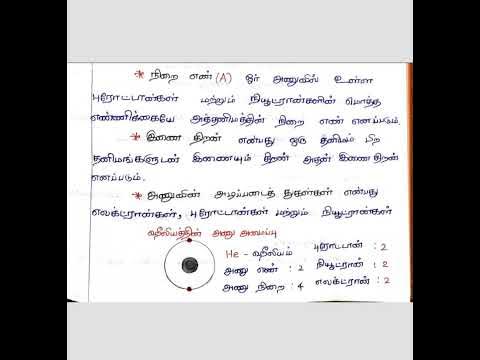 * நிறை எண் (A) ஓர் அணுவில் உள்ள
புரோட்டான்கள் மற்றும் நியூட்ரான்களின் மொத்த
எண்ணிக்கையே அத்தனிமத்தின் நிறை எண் எனப்படும்.
* இணை திறன் என்பது ஒரு தனிமம் பிற
தனிமங்களுடன் இணையும் திறன் அதன் இணை திறன்
எனப்படும்.
* அணுவின் அடிப்படைத் துகள்கள் என்பது
எலக்ட்ரான்கள், புரோட்டான்கள் மற்றும் நியூட்ரான்கள்
ஹீலியத்தின் அணு அமைப்பு
He - ஹீலியம் புரோட்டான் : 2
அணு எண் : 2 நியூட்ரான் : 2
அணு நிறை : 4 எலக்ட்ரான் : 2